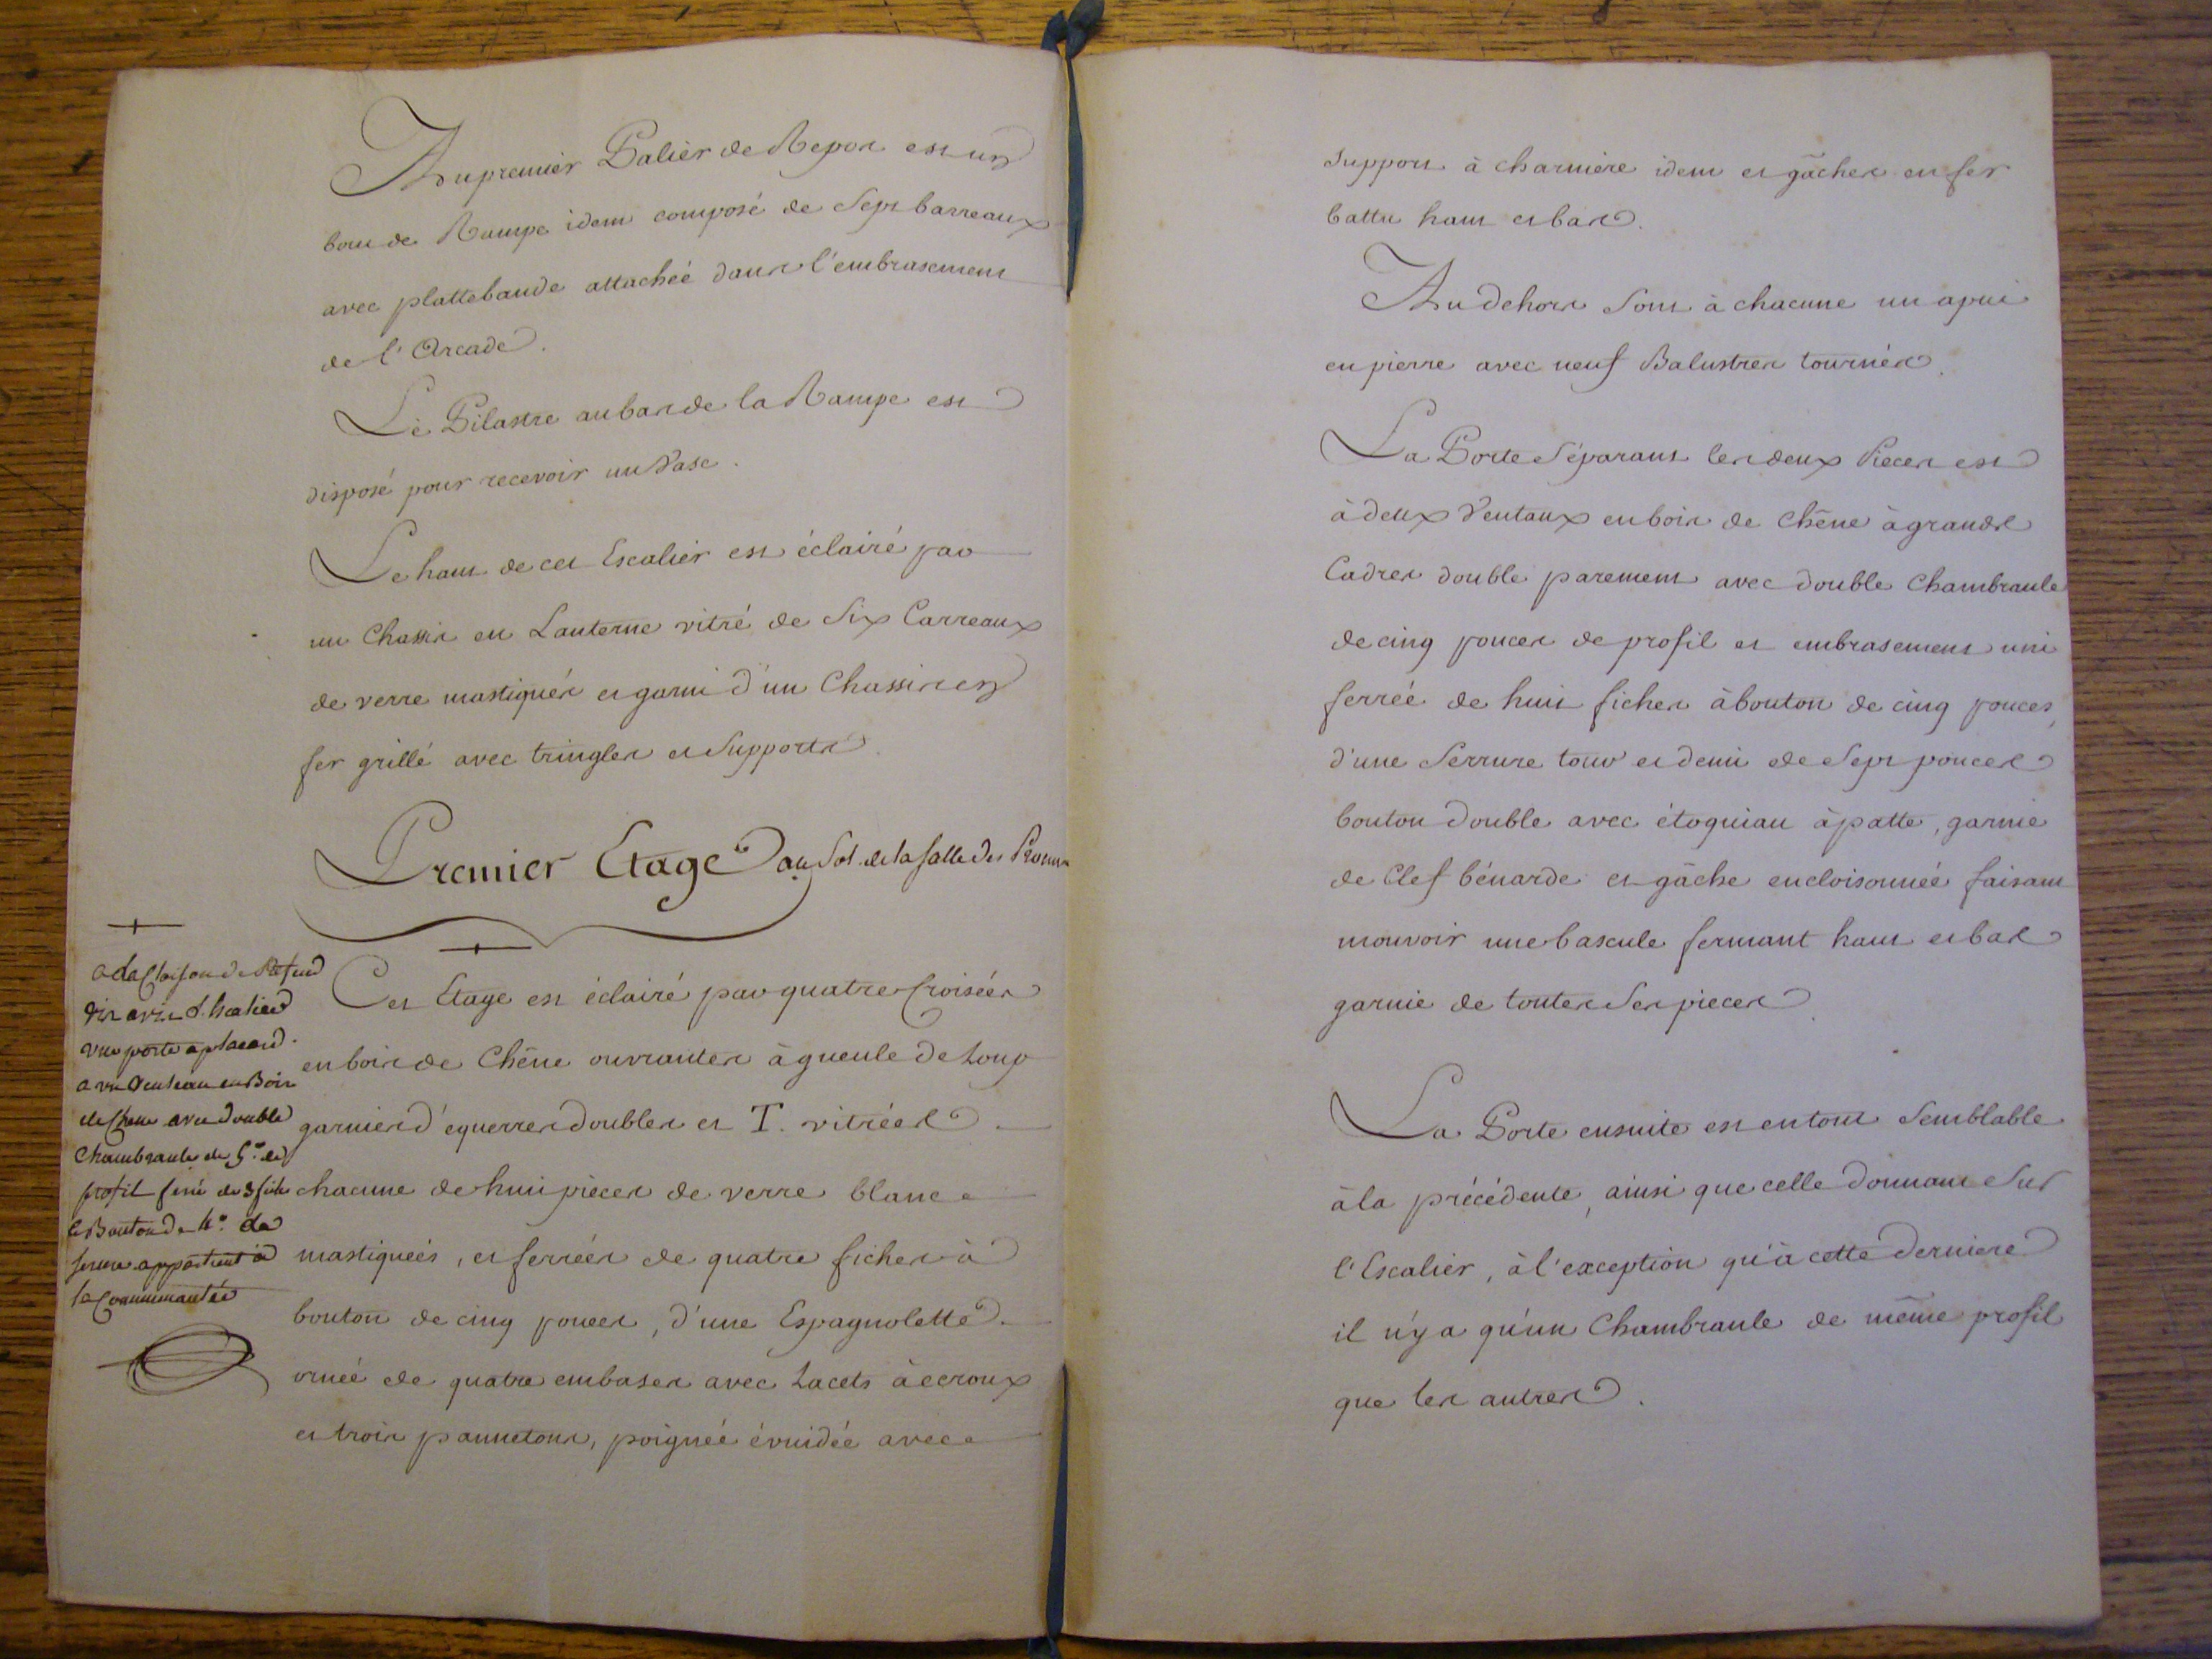 Au premier Palier de Repos est un
bout de Rampe idem composé de Sept barreaux
avec plattebande attachée dans l'embrasement
de l'Arcade.
Le Pilastre au bas de la Rampe est
disposé pour recevoir un Vase.
Le haut de cet Escalier est éclairé par
un Chassis en Lanterne vitré de Six Carreaux
de verre mastiqués et garni d'un Chassis en
fer grillé avec tringles et Supports.
Premier Etage au Sol de la salle des
a la Cloison de Refend
vis avis L'escalier
une porte a placard
a un venteau en Bois
de Chene avec double
Chambranle de 5° de
profil ferré de 3 fiches
a Bouton de 4° la
serrure appartient à
la Communauté
Cet Etage est éclairé par quatre Croisées
en bois de Chêne ouvrantes à gueule de Loup
garnies d'equerres doubles et T. vitrées
chacune de huit pieces de verre blanc
mastiqueés, et ferrées de quatre fiches à
bouton de cinq pouces, d'une Espagnolette
ornée de quatre embases avec Lacets à ecroux
et trois pannetons, poignée évuidée avec
support à charniere idem et gâches en fer
battu haut et bas.
Au dehors Sont à chacune un apui
en pierre avec neuf Balustres tournés.
La Porte Séparant les deux Pieces est
à deux Ventaux en bois de Chêne à grands
Cadres double parement avec double Chambranle
de cinq pouces de profil et embrasement uni
ferrée de huit fiches à bouton de cinq pouces,
d'une Serrure tour et demi de Sept pouces
bouton double avec étoquiau à patte, garnie
de Clef bénarde et gâche encloisonnée faisant
mouvoir une bascule fermant haut et bas
garnie de toutes Ses pieces.
La Porte ensuite est en tout Semblable
à la précédente, ainsi que celle donnant Sur
l'Escalier, à l'exception qu'à cette derniere
il n'y a qu'un Chambranle de même profil
que les autres.